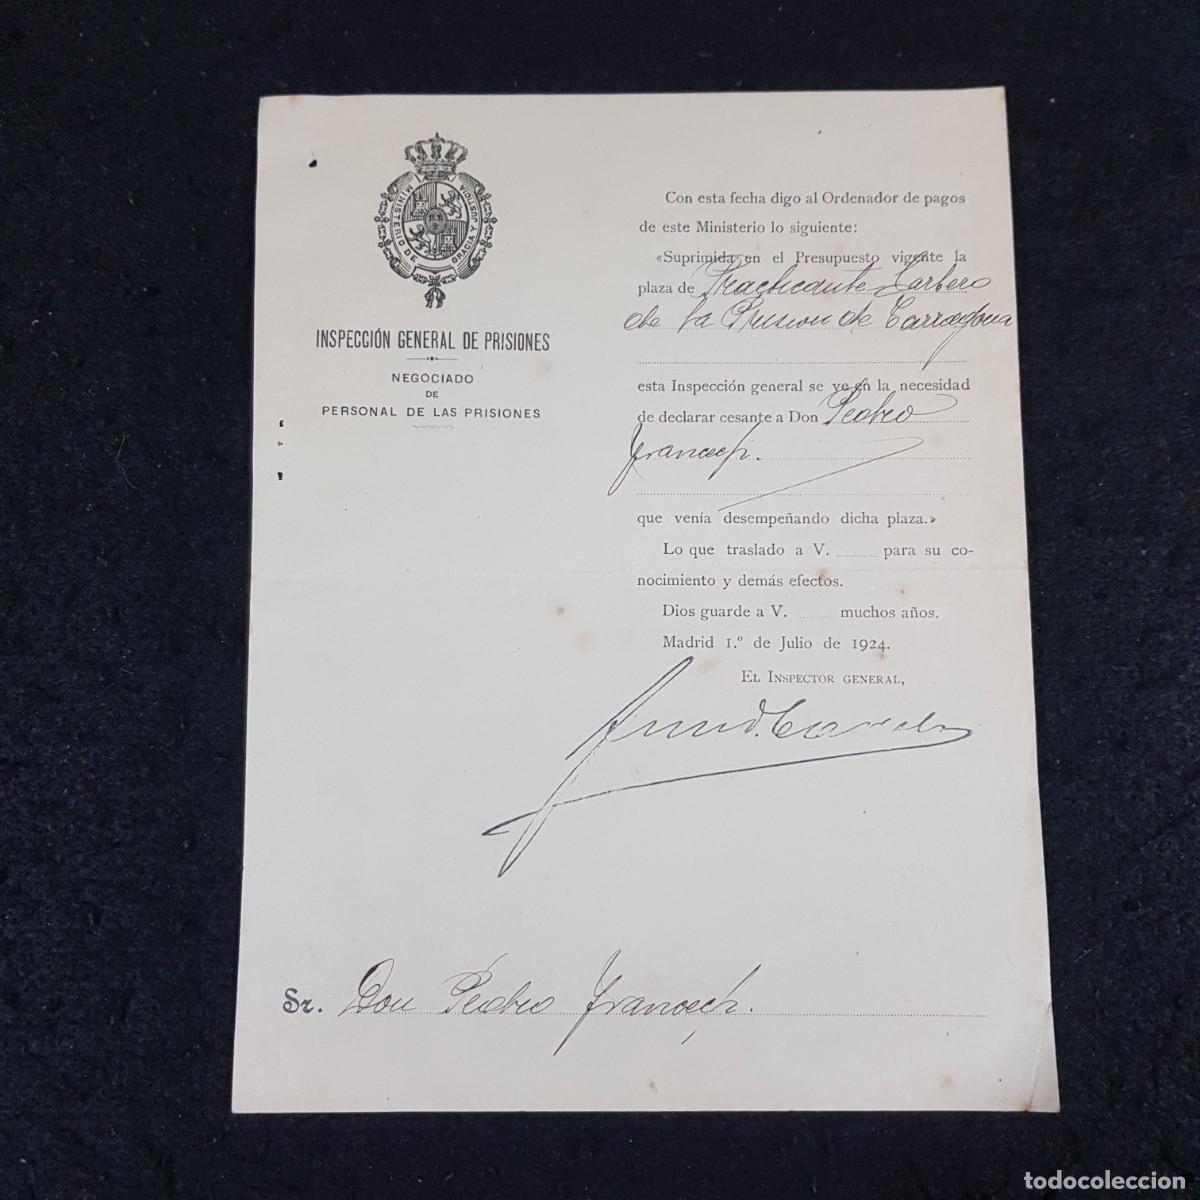 MINISTERIO DE GRACIA Y JUSTICIA
INSPECCIÓN GENERAL DE PRISIONES
NEGOCIADO
DE
PERSONAL DE LAS PRISIONES
Con esta fecha digo al Ordenador de pagos
de este Ministerio lo siguiente:
«Suprimida en el Presupuesto vigente la
plaza de Practicante Barbero
de la Prision de Tarragona
esta Inspección general se ve en la necesidad
de declarar cesante a Don Pedro
Francech.
que venía desempeñando dicha plaza.»
Lo que traslado a V. para su co-
nocimiento y demás efectos.
Dios guarde a V. muchos años.
Madrid 1.º de Julio de 1924.
EL INSPECTOR GENERAL,
Sr. Don Pedro Francech.
todocoleccion